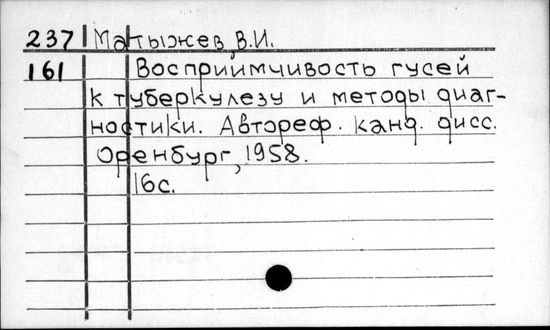 237 Матыжев, В.И.
161 Восприимчивость гусей
к туберкулезу и методы диаг-
ностики. Автореф. канд. дисс.
Оренбург, 1958.
16с.